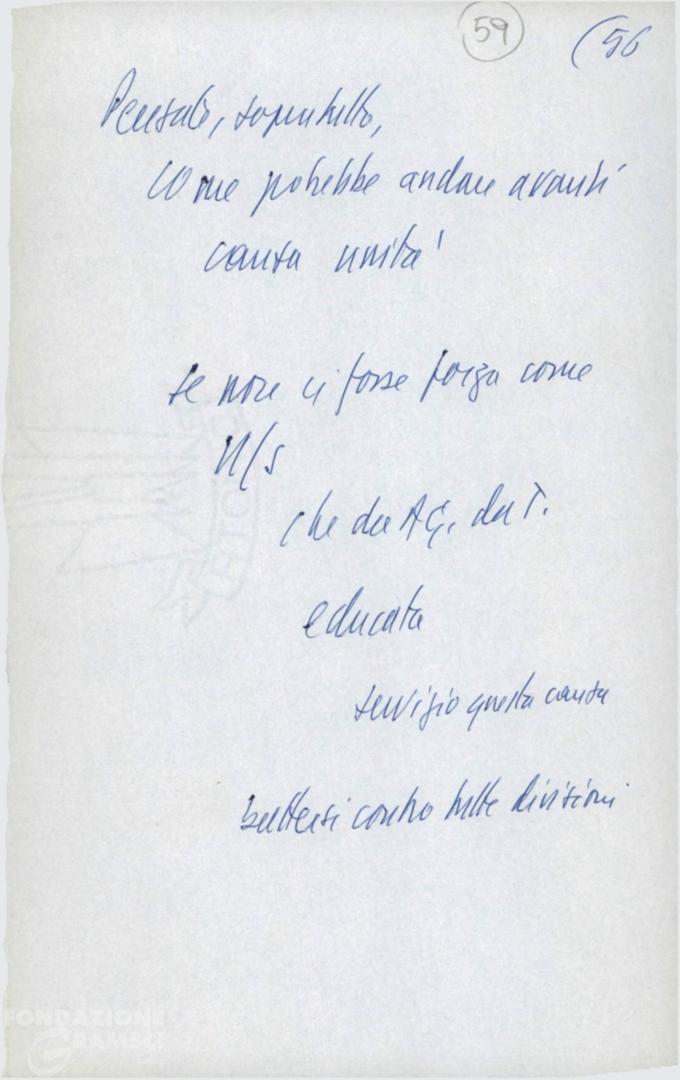 59 (56
Pensate, soprattutto,
come potrebbe andare avanti
causa unità
se non ci fosse forza come
N/s
che da AG. da T.
educata
servizio questa causa
battersi contro tutte divisioni
FONDAZIONE
GRAMSCI